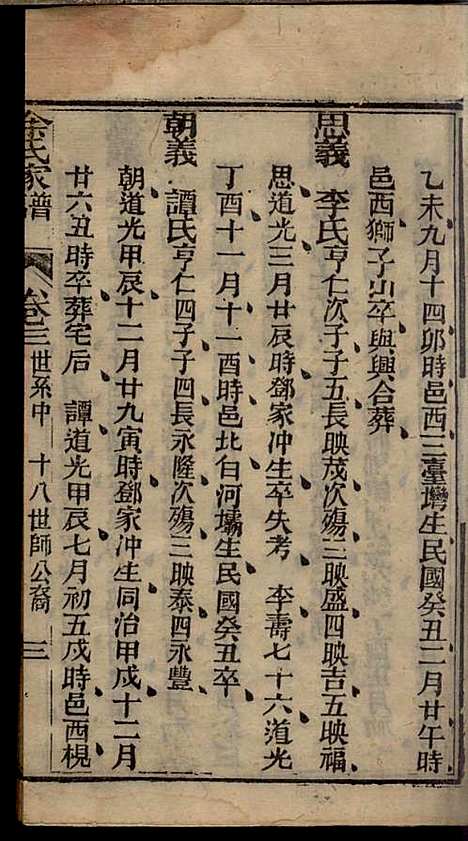 乙未九月十四卯時邑西三臺灣生民國癸丑二月廿午時
邑西獅子山卒與興合葬
思義 李氏亨仁次子子五長映茂次殤三映盛四映吉五映福
思道光三月廿辰時鄧家冲生卒失考 李壽七十六道光
丁酉十一月十一酉時邑北白河壩生民國癸丑卒
朝義 譚氏亨仁四子子四長永隆次殤三映泰四永豐
朝道光甲辰十二月廿九寅時鄧家冲生同治甲戌十二月
廿六丑時卒葬宅后 譚道光甲辰七月初五戌時邑西梘
余氏家譜 卷三 世系中 十八世師公裔 三